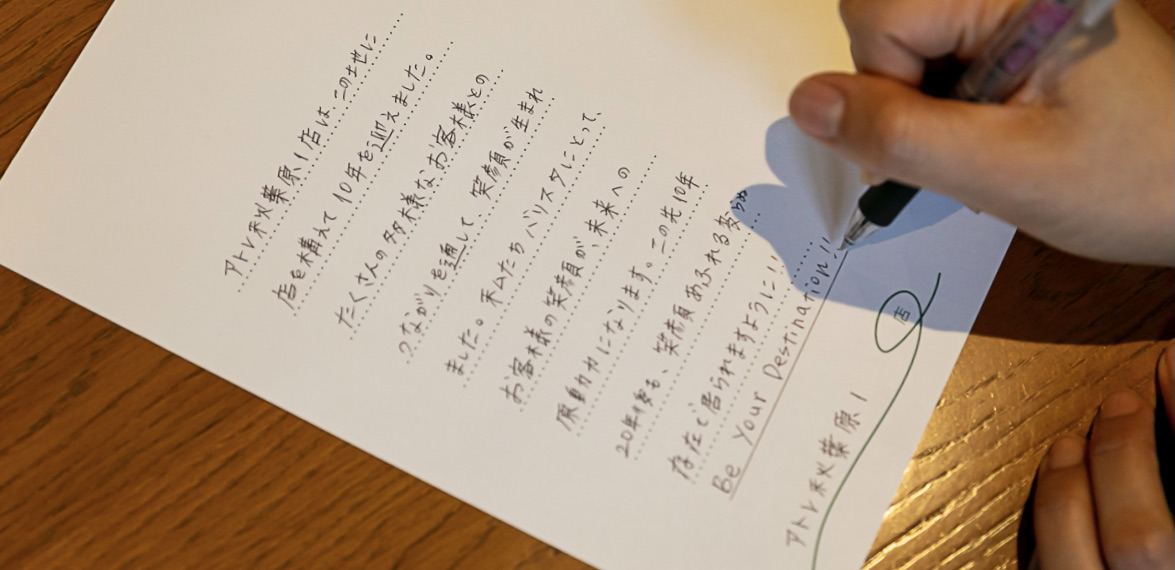 アトレ秋葉原1店は、この土地に
店を構えて10年を迎えました。
たくさんの多様なお客様との
つながりを通して、笑顔が生まれ
ました。私たちバリスタにとって、
お客様の笑顔が、未来への
原動力になります。この先10年
20年後も、笑顔あふれる
存在で居られますように!!
Be Your Destination!!
アトレ秋葉原1 店